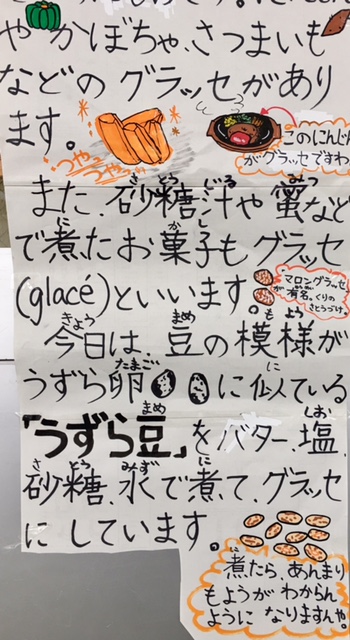 や かぼちゃ、さつまいも
などの グラッセがあり
ます。
つやっ
つやっ
このにんじん
がグラッセですわ
また、砂糖汁や 蜜など
で煮たお菓子も グラッセ
(glacé)といいます。
マロングラッセ
が有名。くりの
さとうづけ。
今日は、豆の模様が
うずら卵 に似ている
「うずら豆」を バター、塩、
砂糖、水で煮て、グラッセ
に しています。
煮たら、あんまり
もようが わからん
ように なりますんや。